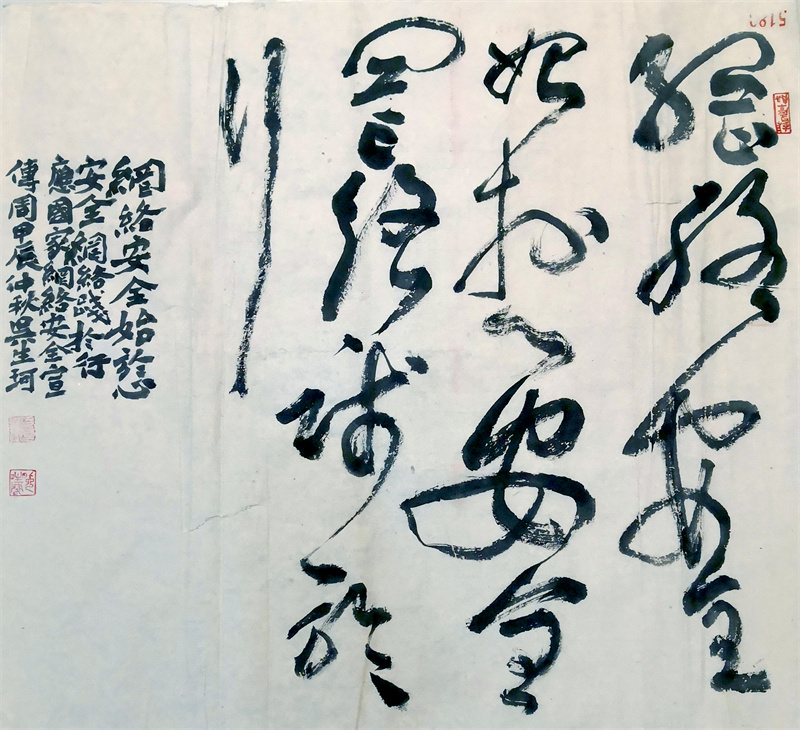 網絡安全
始於心安全
網絡踐於
行
網絡安全始於心
安全網絡踐於行
應國家網絡安全宣
傳周甲辰仲秋吳生珂